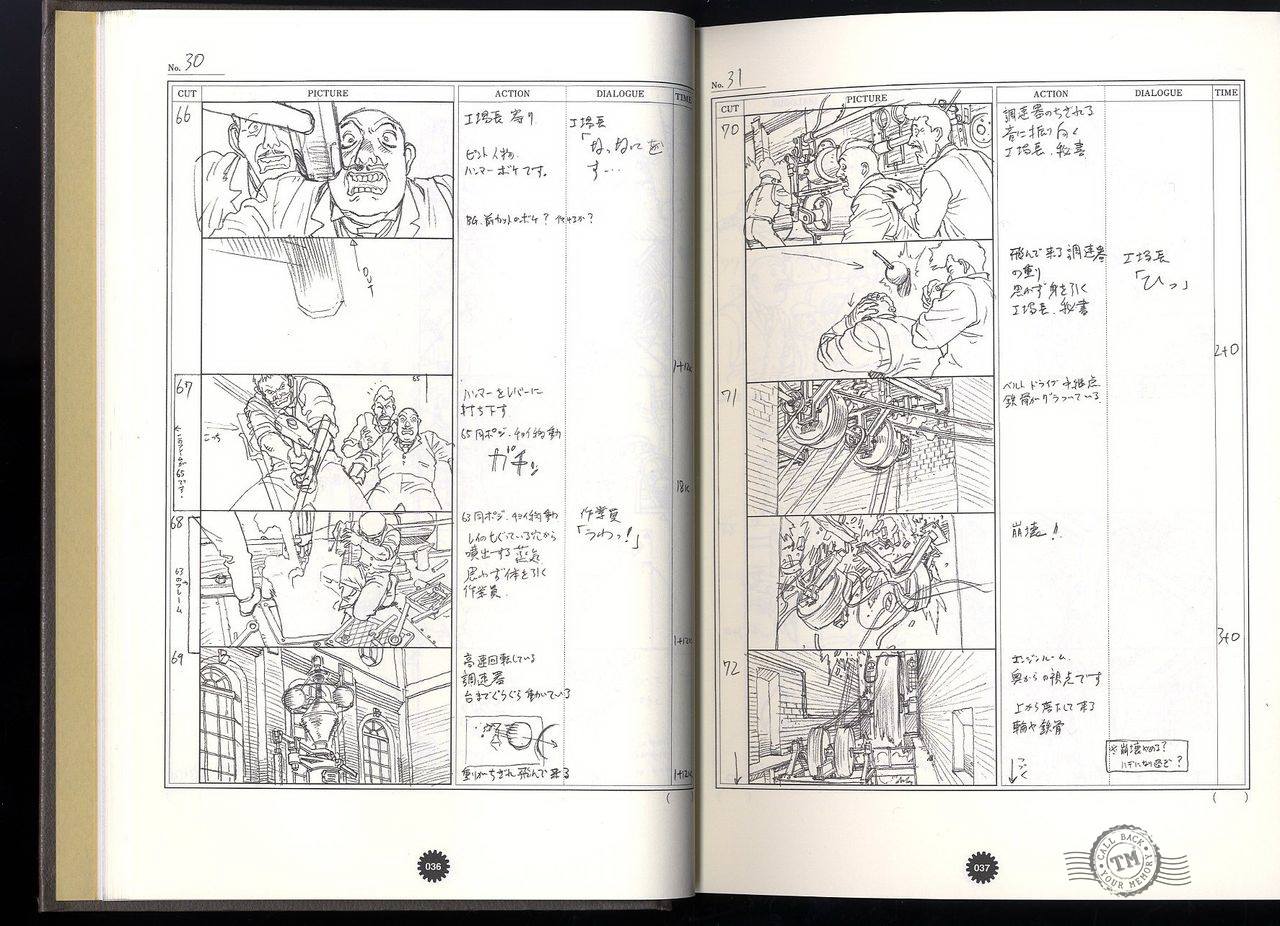 No. 30
CUT
PICTURE
ACTION
DIALOGUE
TIME
66
工場長 寄り
ピント人物.
ハンマーボケです。
工場長
「なっなにを
す…
OUT
1+12K
67
65
ハンマーをレバーに
打ち下す
65同ポジ・チョイ物動
ガチッ
18K
68
63のフレーム
63同ポジ・チョイ物動
レイのもぐっている穴から
噴出する蒸気
思わず体を引く
作業員.
作業員
「うわっ!」
1+12K
69
高速回転している
調速器
台までぐらぐら動いている
重りがちぎれ飛んで来る
1+12K
(
036
No. 31
CUT
PICTURE
ACTION
DIALOGUE
TIME
70
調速器のちぎれる
音に振り向く
工場長、秘書
飛んで来る調速器
の重り
思わず身を引く
工場長、秘書
工場長
「ひっ」
2+0
71
ベルトドライブ中継点
鉄骨がグラついている.
崩壊!
3+0
72
エンジンルーム.
奥からの視点です
上から落下して来る
輪や鉄骨
つづく
( )
037
CALL BACK
TM
YOUR MEMORY